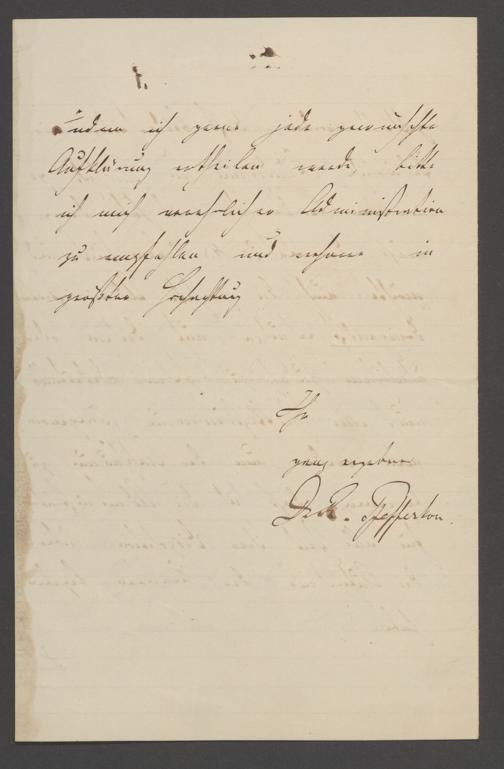 Indem ich gerne jede gewünschte
Aufklärung ertheilen werde, bitte
ich mich verehrlicher Administration
zu empfehlen und zeichne in
größter Hochachtung
Ihr
ganz ergebener
Dr. R. Pfefferkorn.